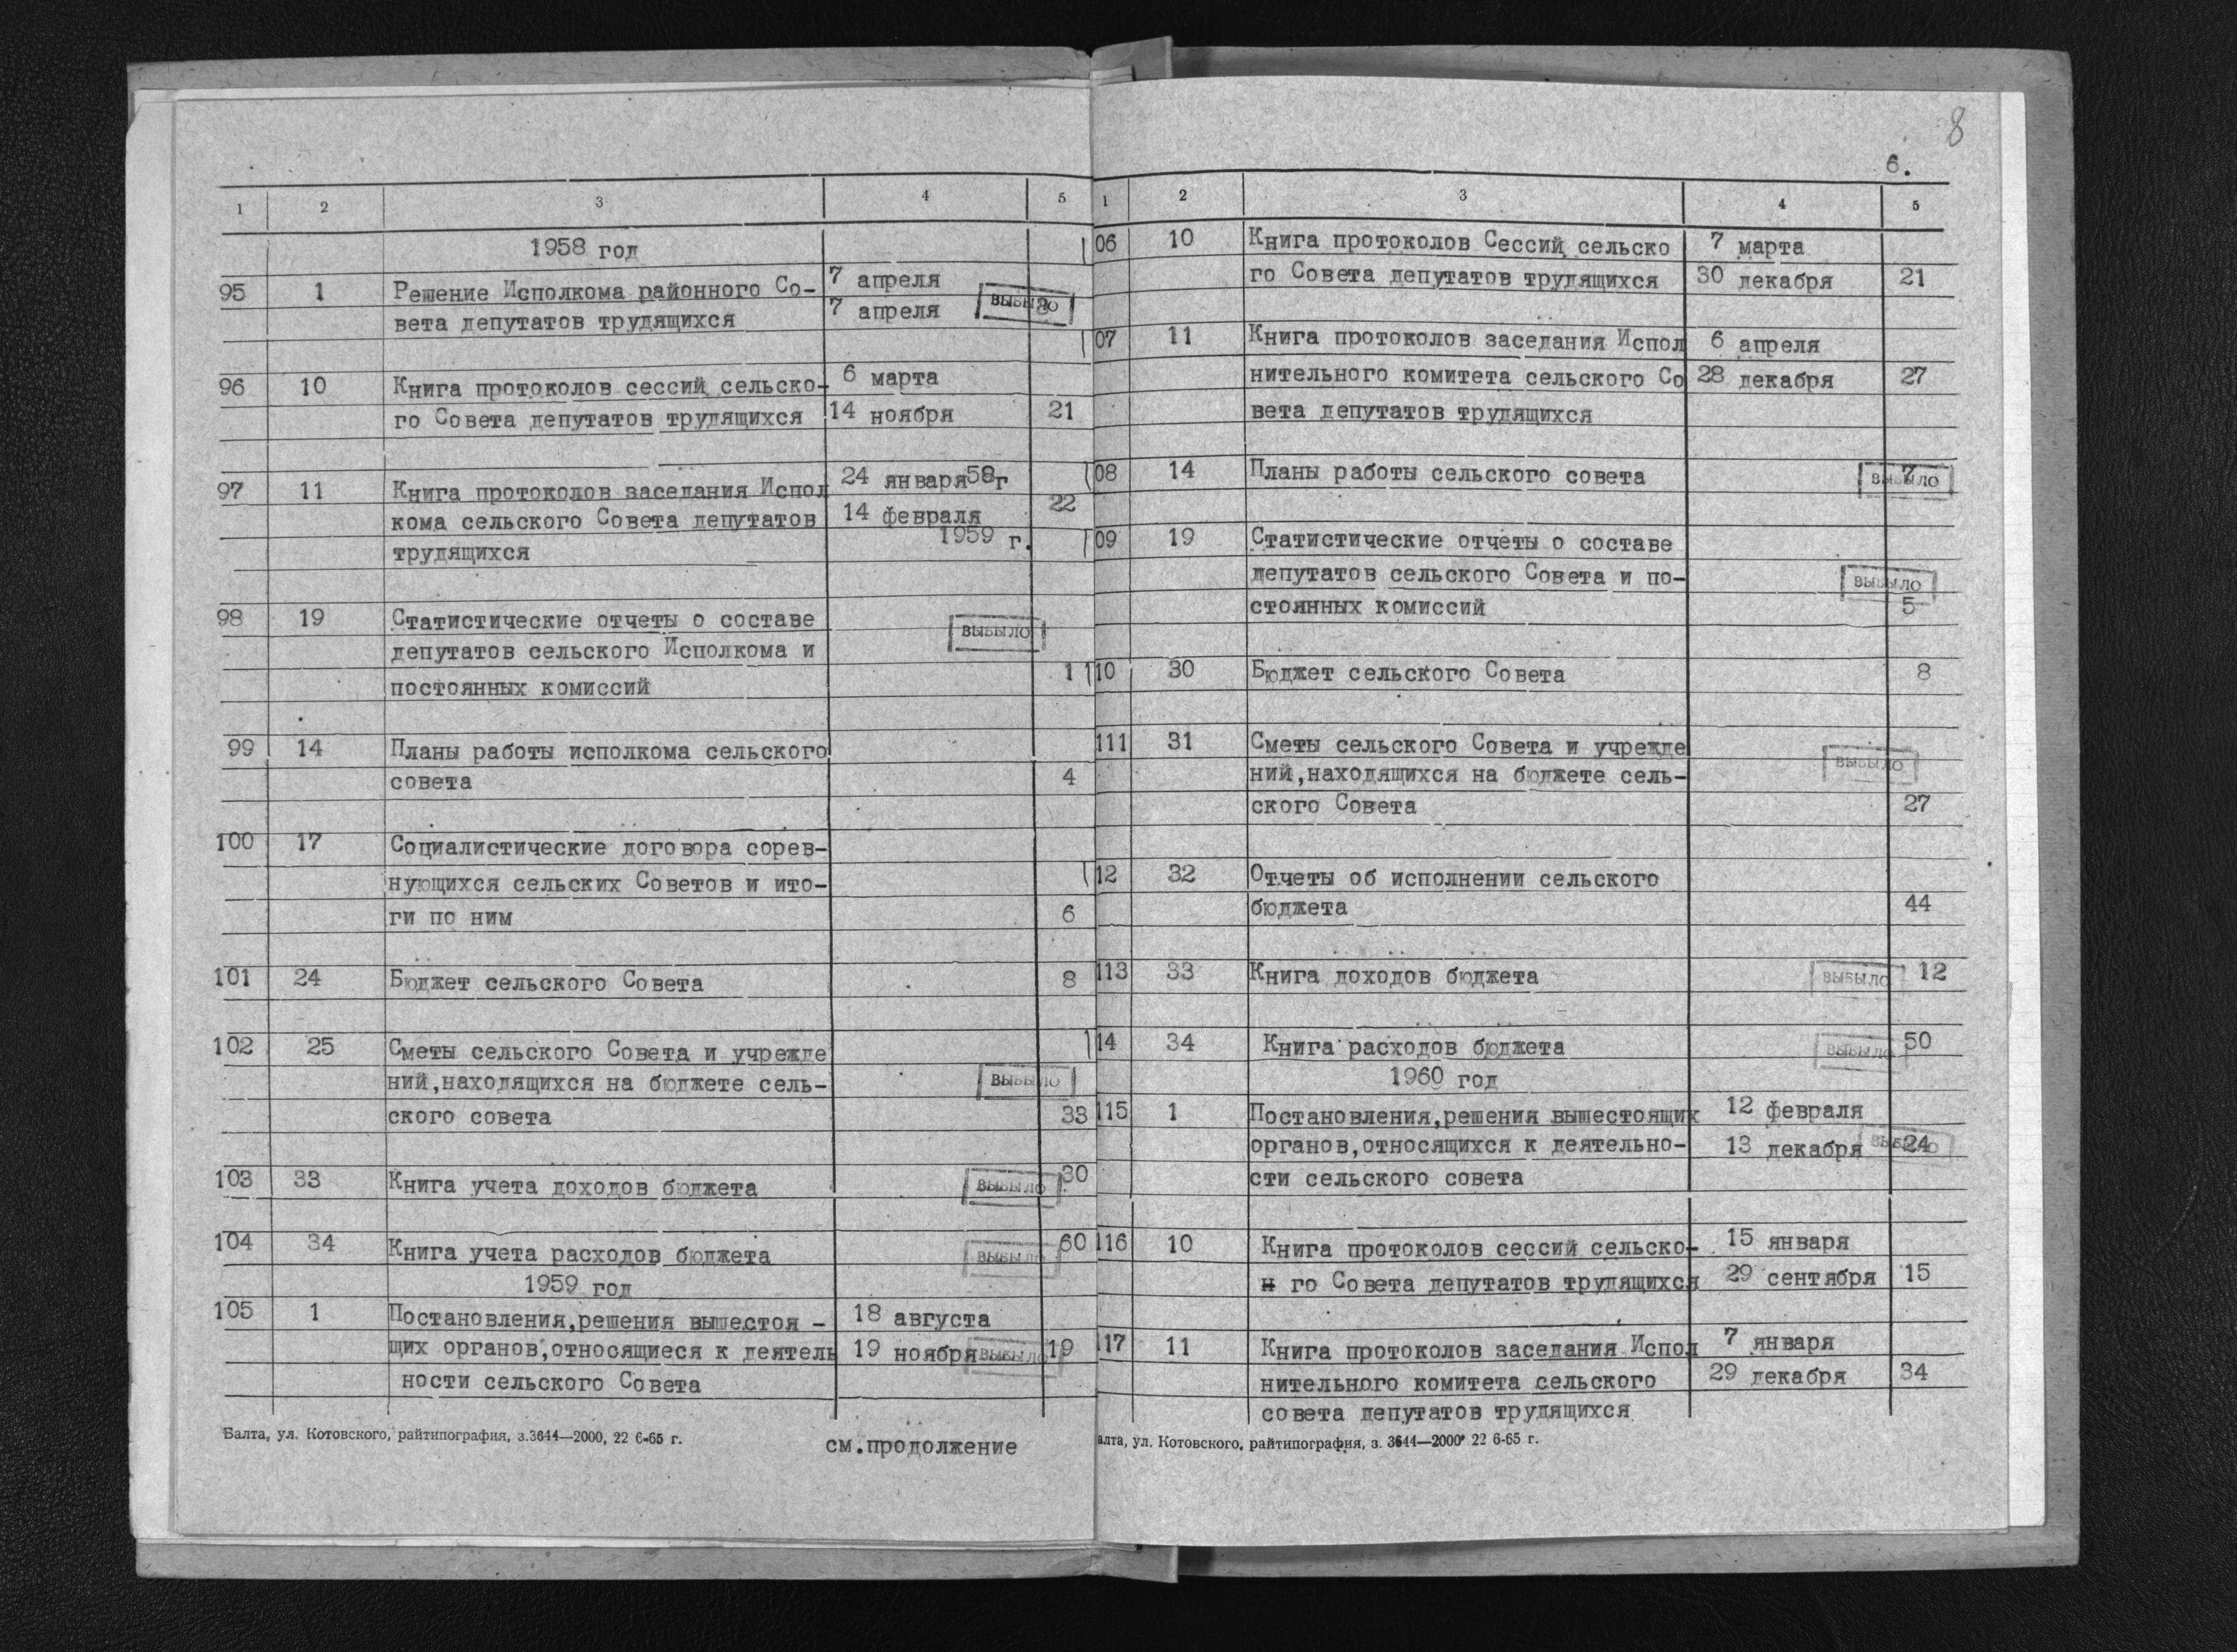 1 2 3 4 5
1958 год
95 1 Решение Исполкома районного Со- 7 апреля
вета депутатов трудящихся 7 апреля выбыло
96 10 Книга протоколов сессий сельско- 6 марта
го Совета депутатов трудящихся 14 ноября 21
97 11 Книга протоколов заседания Испол 24 января 58г
кома сельского Совета депутатов 14 февраля 22
трудящихся 1959 г.
98 19 Статистические отчеты о составе выбыло
депутатов сельского Исполкома и
постоянных комиссий 1
99 14 Планы работы исполкома сельского
совета 4
100 17 Социалистические договора сорев-
нующихся сельских Советов и ито-
ги по ним 6
101 24 Бюджет сельского Совета 8
102 25 Сметы сельского Совета и учрежде
ний,находящихся на бюджете сель- выбыло
ского совета 33
103 33 Книга учета доходов бюджета выбыло 30
104 34 Книга учета расходов бюджета выбыло 60
1959 год
105 1 Постановления,решения вышестоя - 18 августа
щих органов,относящиеся к деятель 19 ноября выбыло 19
ности сельского Совета
Балта, ул. Котовского, райтипография, з.3644—2000, 22 6-65 г.
см.продолжение
8
6.
1 2 3 4 5
106 10 Книга протоколов Сессий сельско 7 марта
го Совета депутатов трудящихся 30 декабря 21
107 11 Книга протоколов заседания Испол 6 апреля
нительного комитета сельского Со 28 декабря 27
вета депутатов трудящихся
108 14 Планы работы сельского совета выбыло 7
109 19 Статистические отчеты о составе
депутатов сельского Совета и по- выбыло
стоянных комиссий 5
110 30 Бюджет сельского Совета 8
111 31 Сметы сельского Совета и учрежде
ний,находящихся на бюджете сель- выбыло
ского Совета 27
112 32 Отчеты об исполнении сельского
бюджета 44
113 33 Книга доходов бюджета выбыло 12
114 34 Книга расходов бюджета выбыло 50
1960 год
115 1 Постановления,решения вышестоящих 12 февраля
органов,относящихся к деятельно- 13 декабря выбыло 24
сти сельского совета
116 10 Книга протоколов сессий сельско- 15 января
го Совета депутатов трудящихся 29 сентября 15
117 11 Книга протоколов заседания Испол 7 января
нительного комитета сельского 29 декабря 34
совета депутатов трудящихся
алта, ул. Котовского, райтипография, з. 3644—2000 22 6-65 г.